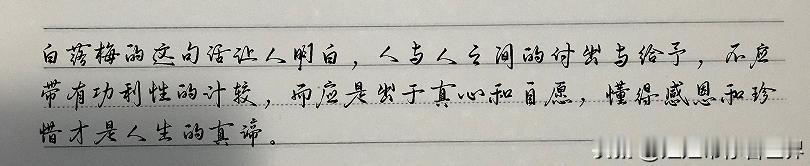 白落梅的这句话让人明白，人与人之间的付出与给予，不应
带有功利性的计较，而应是出于真心和自愿，懂得感恩和珍
惜才是人生的真谛。